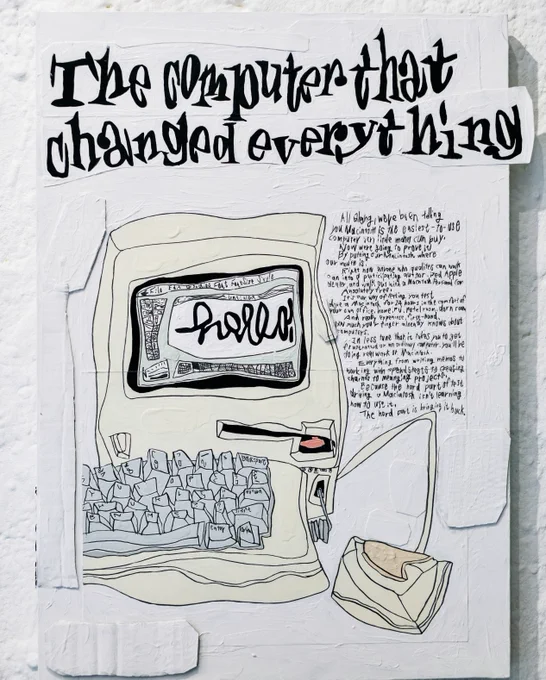 The computer that
changed everything
File Edit Goodies Font FontSize Style
hello!
All along, we've been telling
you Macintosh is the easiest-to-use
computer money can buy.
Now we're going to prove it.
By putting our Macintosh where
our mouth is.
Right now, anyone who qualifies can walk
participating Apple
and walk out with a Macintosh Personal
Absolutely free.
It's our way of letting you test
drive a Macintosh for 24 hours in the comfort of
your own office, home, hotel room, dorm room
And really experience, first-hand,
how much your finger already knows about
computers.
In less time than it takes you to get
frustrated on an ordinary computer, you'll be
doing real work on Macintosh.
Everything from writing memos to
working with spreadsheets to creating
charts to managing projects.
Because the hard part of test
driving a Macintosh isn't learning
how to use it.
The hard part is bringing it back.